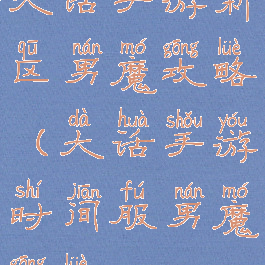 大话手游新
qū nán mó gōng lüè
区男魔攻略
dà huà shǒu yóu
(大话手游
shí jiān fú nán mó
时间服男魔
gōng lüè